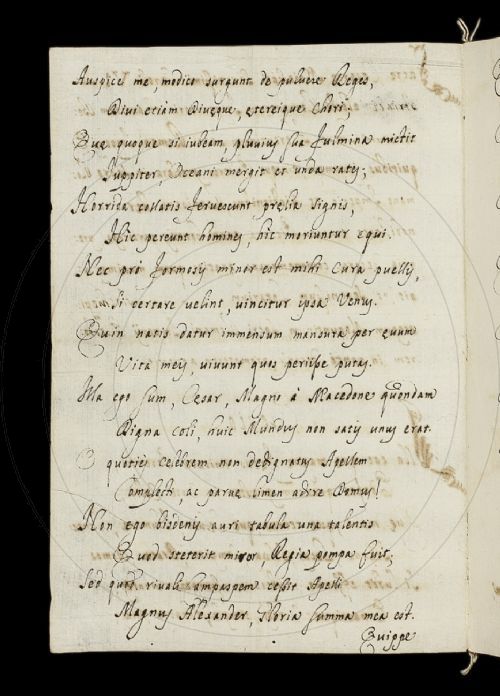 Auspice me, modico surgunt de pulvere Reges,
Divi etiam Divęque, ętereique Chori;
Quę quoque si iubeam pluvius sua fulmina mittit
Iuppiter, Oceani mergit et unda rates;
Horrida collatis fervescunt pręlia signis,
Hic pereunt homines, hic moriuntur equi.
Nec pro formosis minor est mihi cura puellis,
Si certare velint, vincitur ipsa Venus.
Quin natis datur immensum mansura per ęvum
Vita meis, vivunt quos periisse putas.
Illa ego sum, Cęsar, Magno à Macedone quondam
Digna coli, huic Mundus non satis unus erat.
O quoties celebrem non dedignatus Apellem
Complecti ac parvę limen adire Domus!
Non ego bisdenis auri tabula una talentis
Quod steterit miror, Regia pompa fuit;
Sed quod rivali Campaspem cessit Apelli
Magnus Alexander, Gloria summa mea est.
Quippe